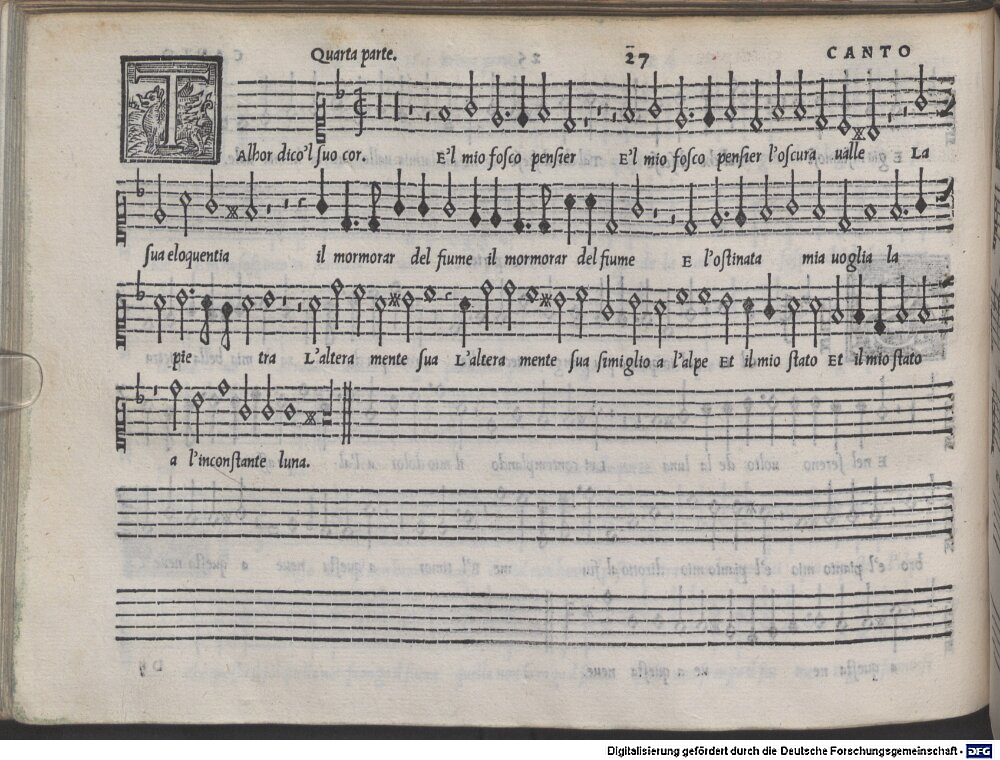 Quarta parte. 27 CANTO
TAlhor dico'l suo cor. E'l mio fosco pensier E'l mio fosco pensier l'oscura ualle La
sua eloquentia il mormorar del fiume il mormorar del fiume E l'ostinata mia uoglia la
pie tra L'altera mente sua L'altera mente sua simiglio a l'alpe Et il mio stato Et il mio stato
a l'inconstante luna.
Digitalisierung gefördert durch die Deutsche Forschungsgemeinschaft - DFG